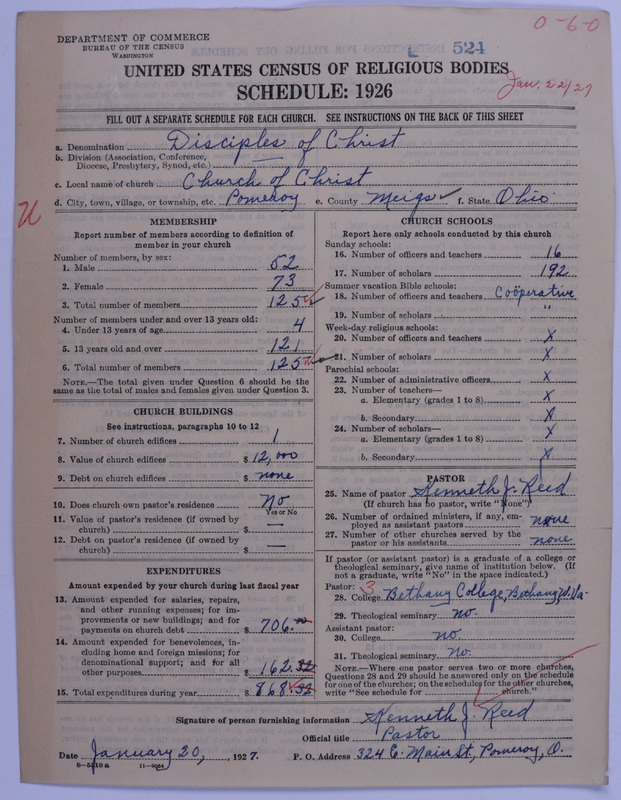 0-6-0
DEPARTMENT OF COMMERCE
BUREAU OF THE CENSUS
WASHINGTON
524
UNITED STATES CENSUS OF RELIGIOUS BODIES
SCHEDULE: 1926
Jan. 22/27
FILL OUT A SEPARATE SCHEDULE FOR EACH CHURCH. SEE INSTRUCTIONS ON THE BACK OF THIS SHEET
a. Denomination Disciples of Christ
b. Division (Association, Conference,
Diocese, Presbytery, Synod, etc.) —
c. Local name of church Church of Christ
d. City, town, village, or township, etc. Pomeroy e. County Meigs f. State Ohio
U
MEMBERSHIP
Report number of members according to definition of
member in your church
Number of members, by sex:
1. Male 52
2. Female 73
3. Total number of members 125
Number of members under and over 13 years old:
4. Under 13 years of age 4
5. 13 years old and over 121
6. Total number of members 125
NOTE.—The total given under Question 6 should be the
same as the total of males and females given under Question 3.
CHURCH BUILDINGS
See instructions, paragraphs 10 to 12
7. Number of church edifices 1
8. Value of church edifices $ 12,000
9. Debt on church edifices $ none
10. Does church own pastor's residence No
Yes or No
11. Value of pastor's residence (if owned by
church) $ —
12. Debt on pastor's residence (if owned by
church) $ —
EXPENDITURES
Amount expended by your church during last fiscal year
13. Amount expended for salaries, repairs,
and other running expenses; for im-
provements or new buildings; and for
payments on church debt $ 706.
14. Amount expended for benevolences, in-
cluding home and foreign missions; for
denominational support; and for all
other purposes 162.32
15. Total expenditures during year $ 868.32
CHURCH SCHOOLS
Report here only schools conducted by this church
Sunday schools:
16. Number of officers and teachers 16
17. Number of scholars 192
Summer vacation Bible schools:
18. Number of officers and teachers Coöperative
19. Number of scholars "
Week-day religious schools:
20. Number of officers and teachers X
21. Number of scholars X
Parochial schools:
22. Number of administrative officers X
23. Number of teachers—
a. Elementary (grades 1 to 8) X
b. Secondary X
24. Number of scholars—
a. Elementary (grades 1 to 8) X
b. Secondary X
PASTOR
25. Name of pastor Kenneth J. Reed
(If church has no pastor, write "None")
26. Number of ordained ministers, if any, em-
ployed as assistant pastors none
27. Number of other churches served by the
pastor or his assistants none
If pastor (or assistant pastor) is a graduate of a college or
theological seminary, give name of institution below. (If
not a graduate, write "No" in the space indicated.)
Pastor: 3
28. College Bethany College, Bethany, W. Va.
29. Theological seminary no.
Assistant pastor:
30. College no.
31. Theological seminary No.
NOTE.—Where one pastor serves two or more churches,
Questions 28 and 29 should be answered only on the schedule
for one of the churches; on the schedules for the other churches,
write "See schedule for church."
Signature of person furnishing information Kenneth J. Reed
Official title Pastor
Date January 20, 1927. P. O. Address 324 E. Main St., Pomeroy, O.
8-5518a 11-9024